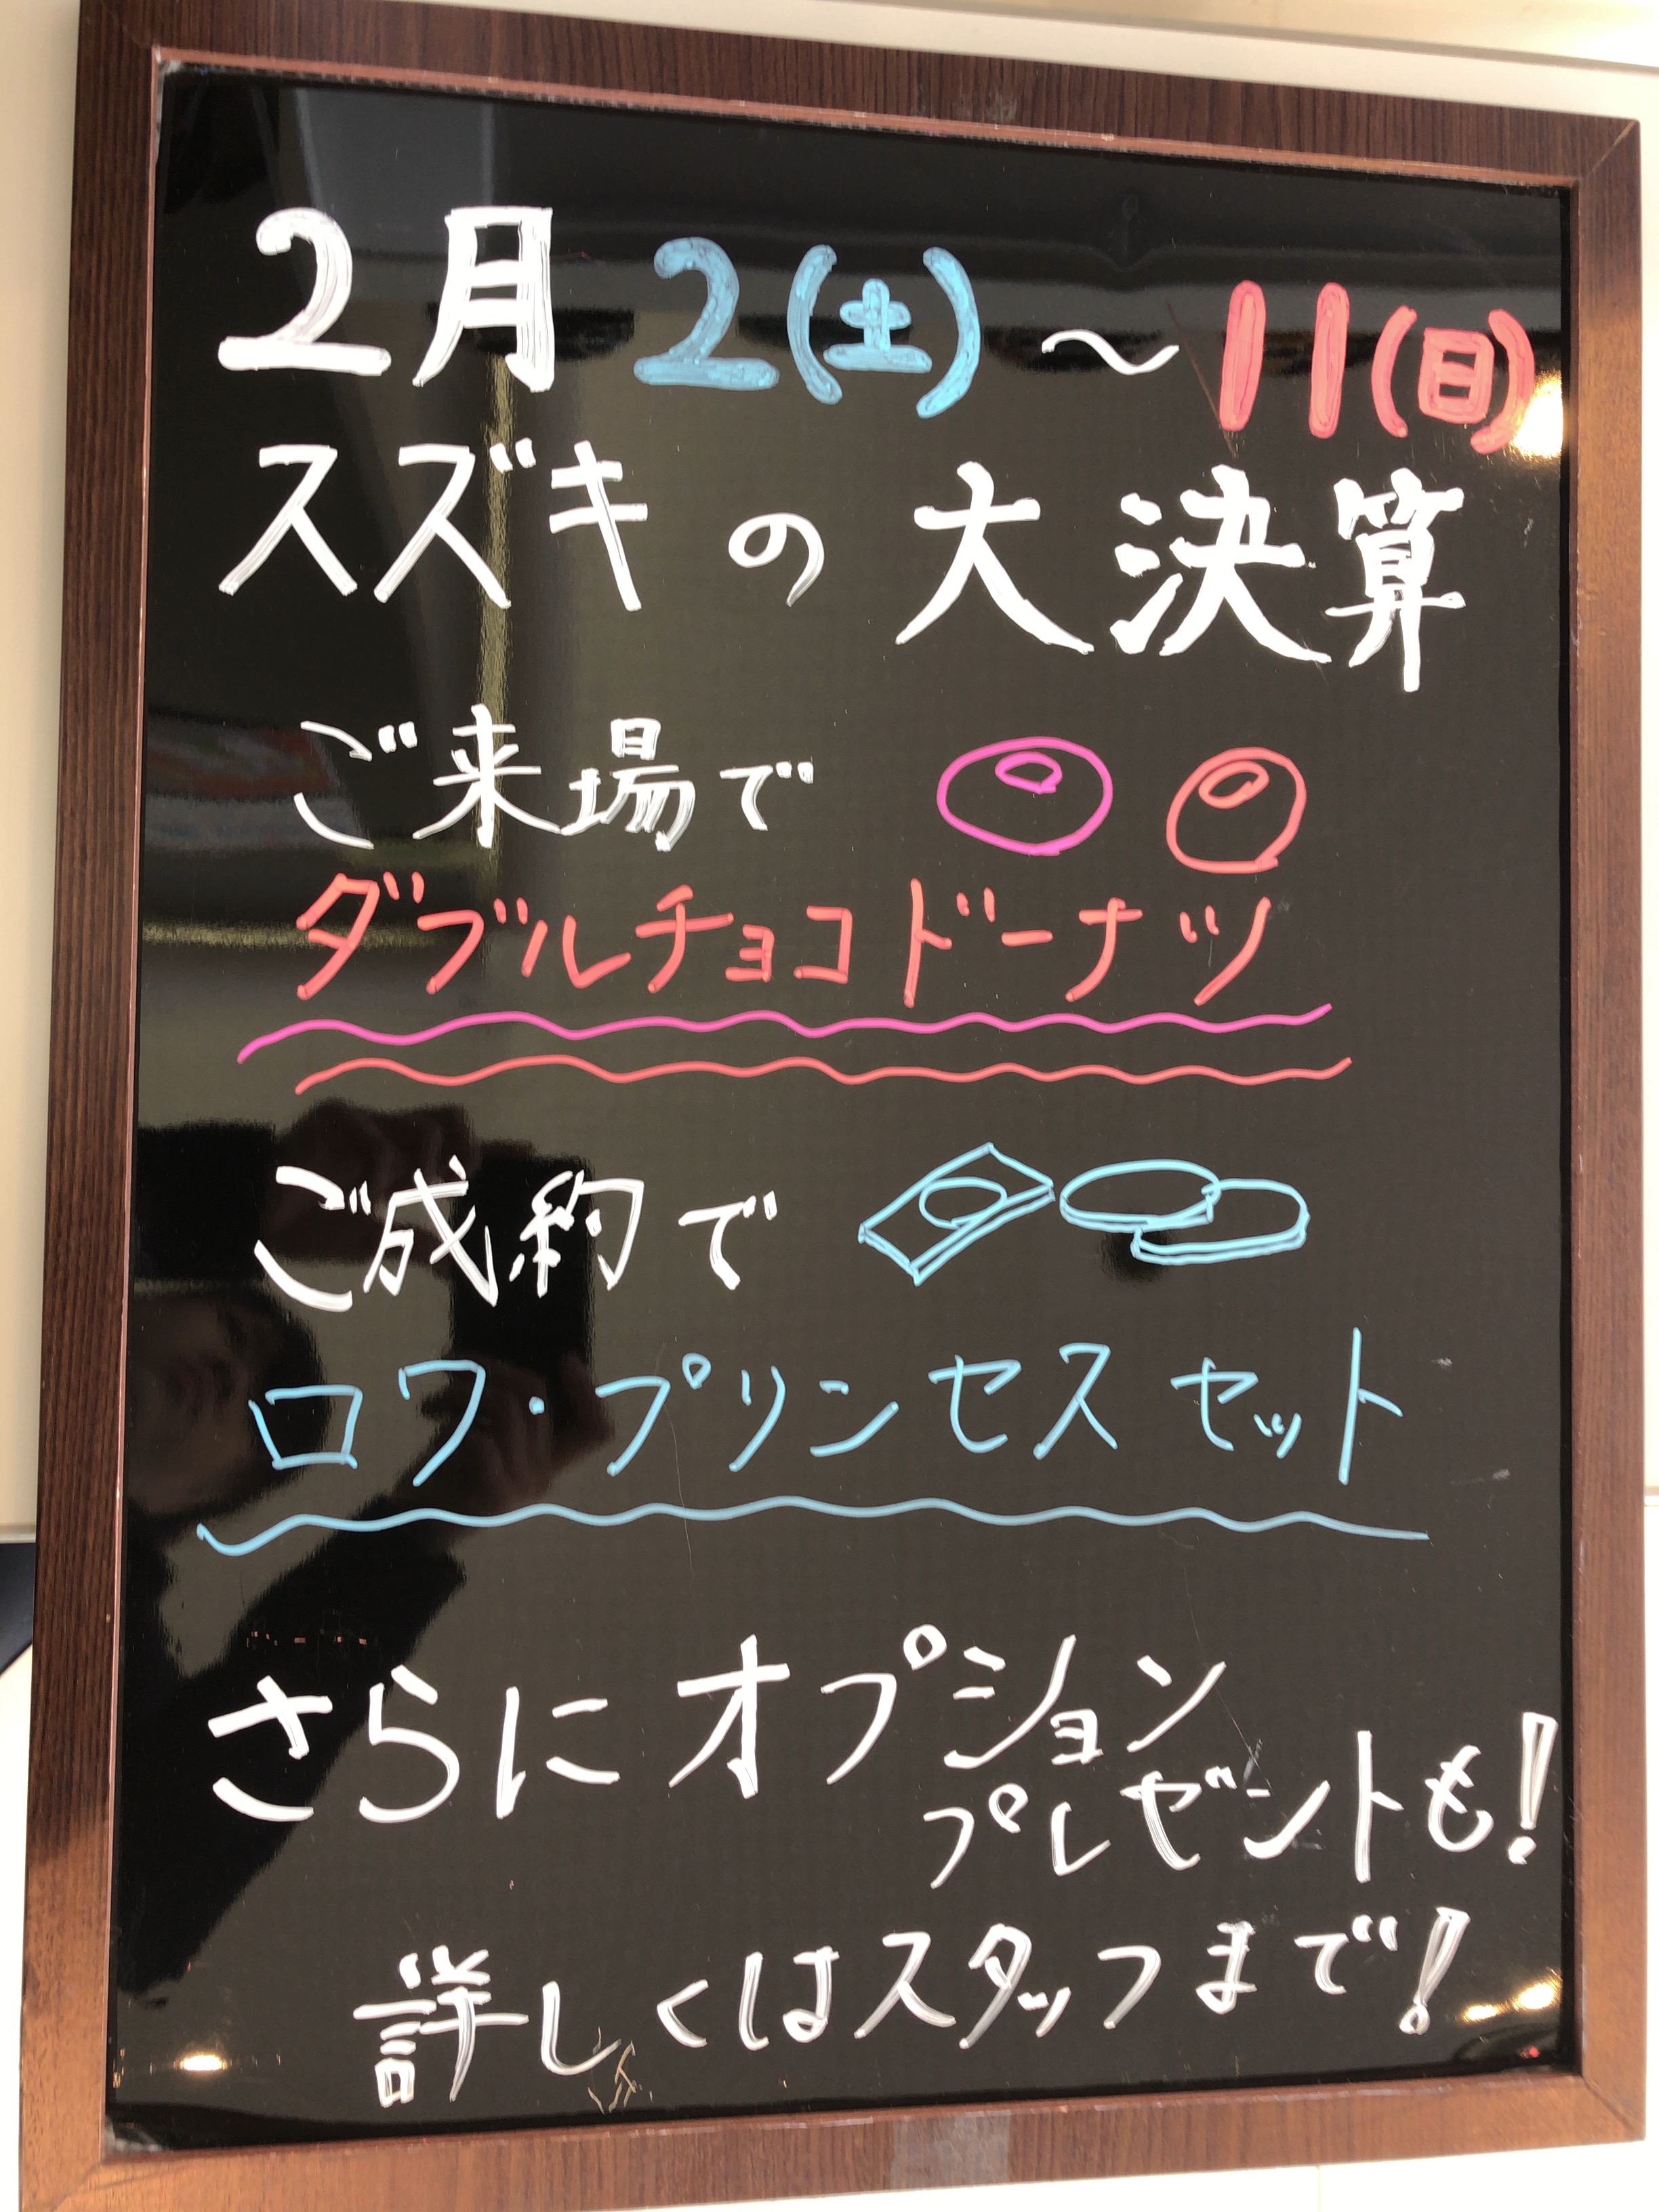 2月2(土)～11(日)
スズキの大決算
ご来場で
ダブルチョコドーナツ
ご成約で
ロワ・プリンセスセット
さらにオプション
プレゼントも!
詳しくはスタッフまで!